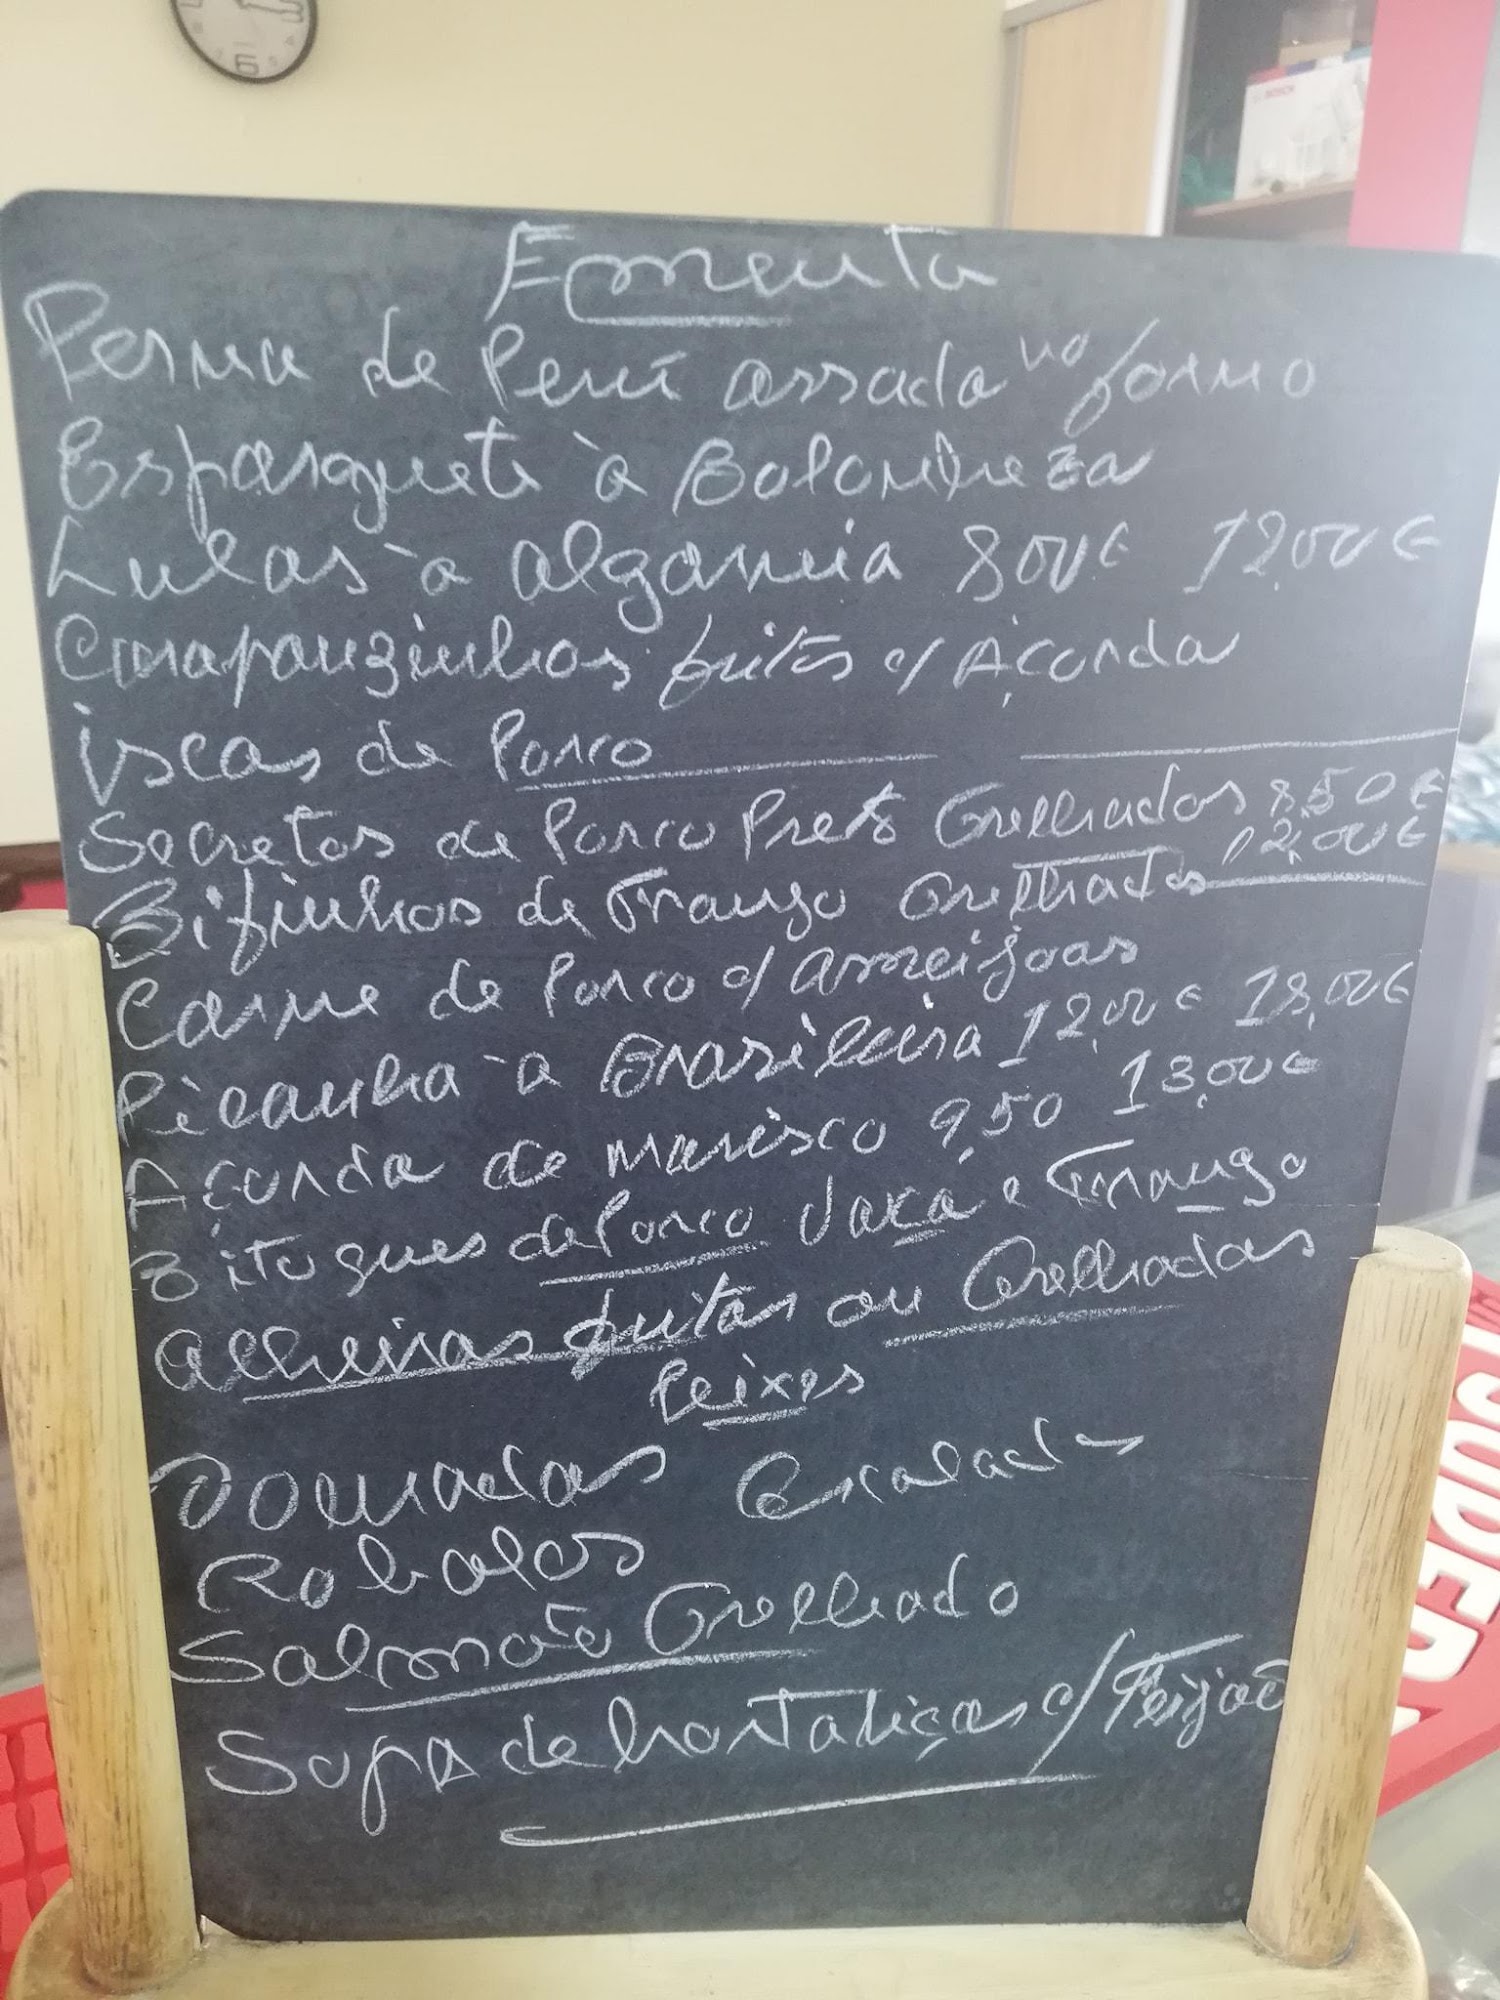 Ementa
Perna de Perú assada no forno
Esparguete à Bolonheza
Lulas à algarvia 8,00€ 12,00€
Carapauzinhos fritos c/ Açorda
iscas de Porco
Secretos de Porco Preto Grelhados 8,50€
12,00€
Bifinhos de Frango Grelhados
Carne de Porco c/ Ameijoas
Picanha à Brasileira 12,00€ 18,00€
Açorda de marisco 9,50 13,00€
Bitoques de Porco Vaca e Frango
Alheiras fritas ou Grelhadas
Peixes
Douradas Escalad
Robalos
Salmão Grelhado
Sopa de hortaliças c/ Feijão
BOSCH
6
3